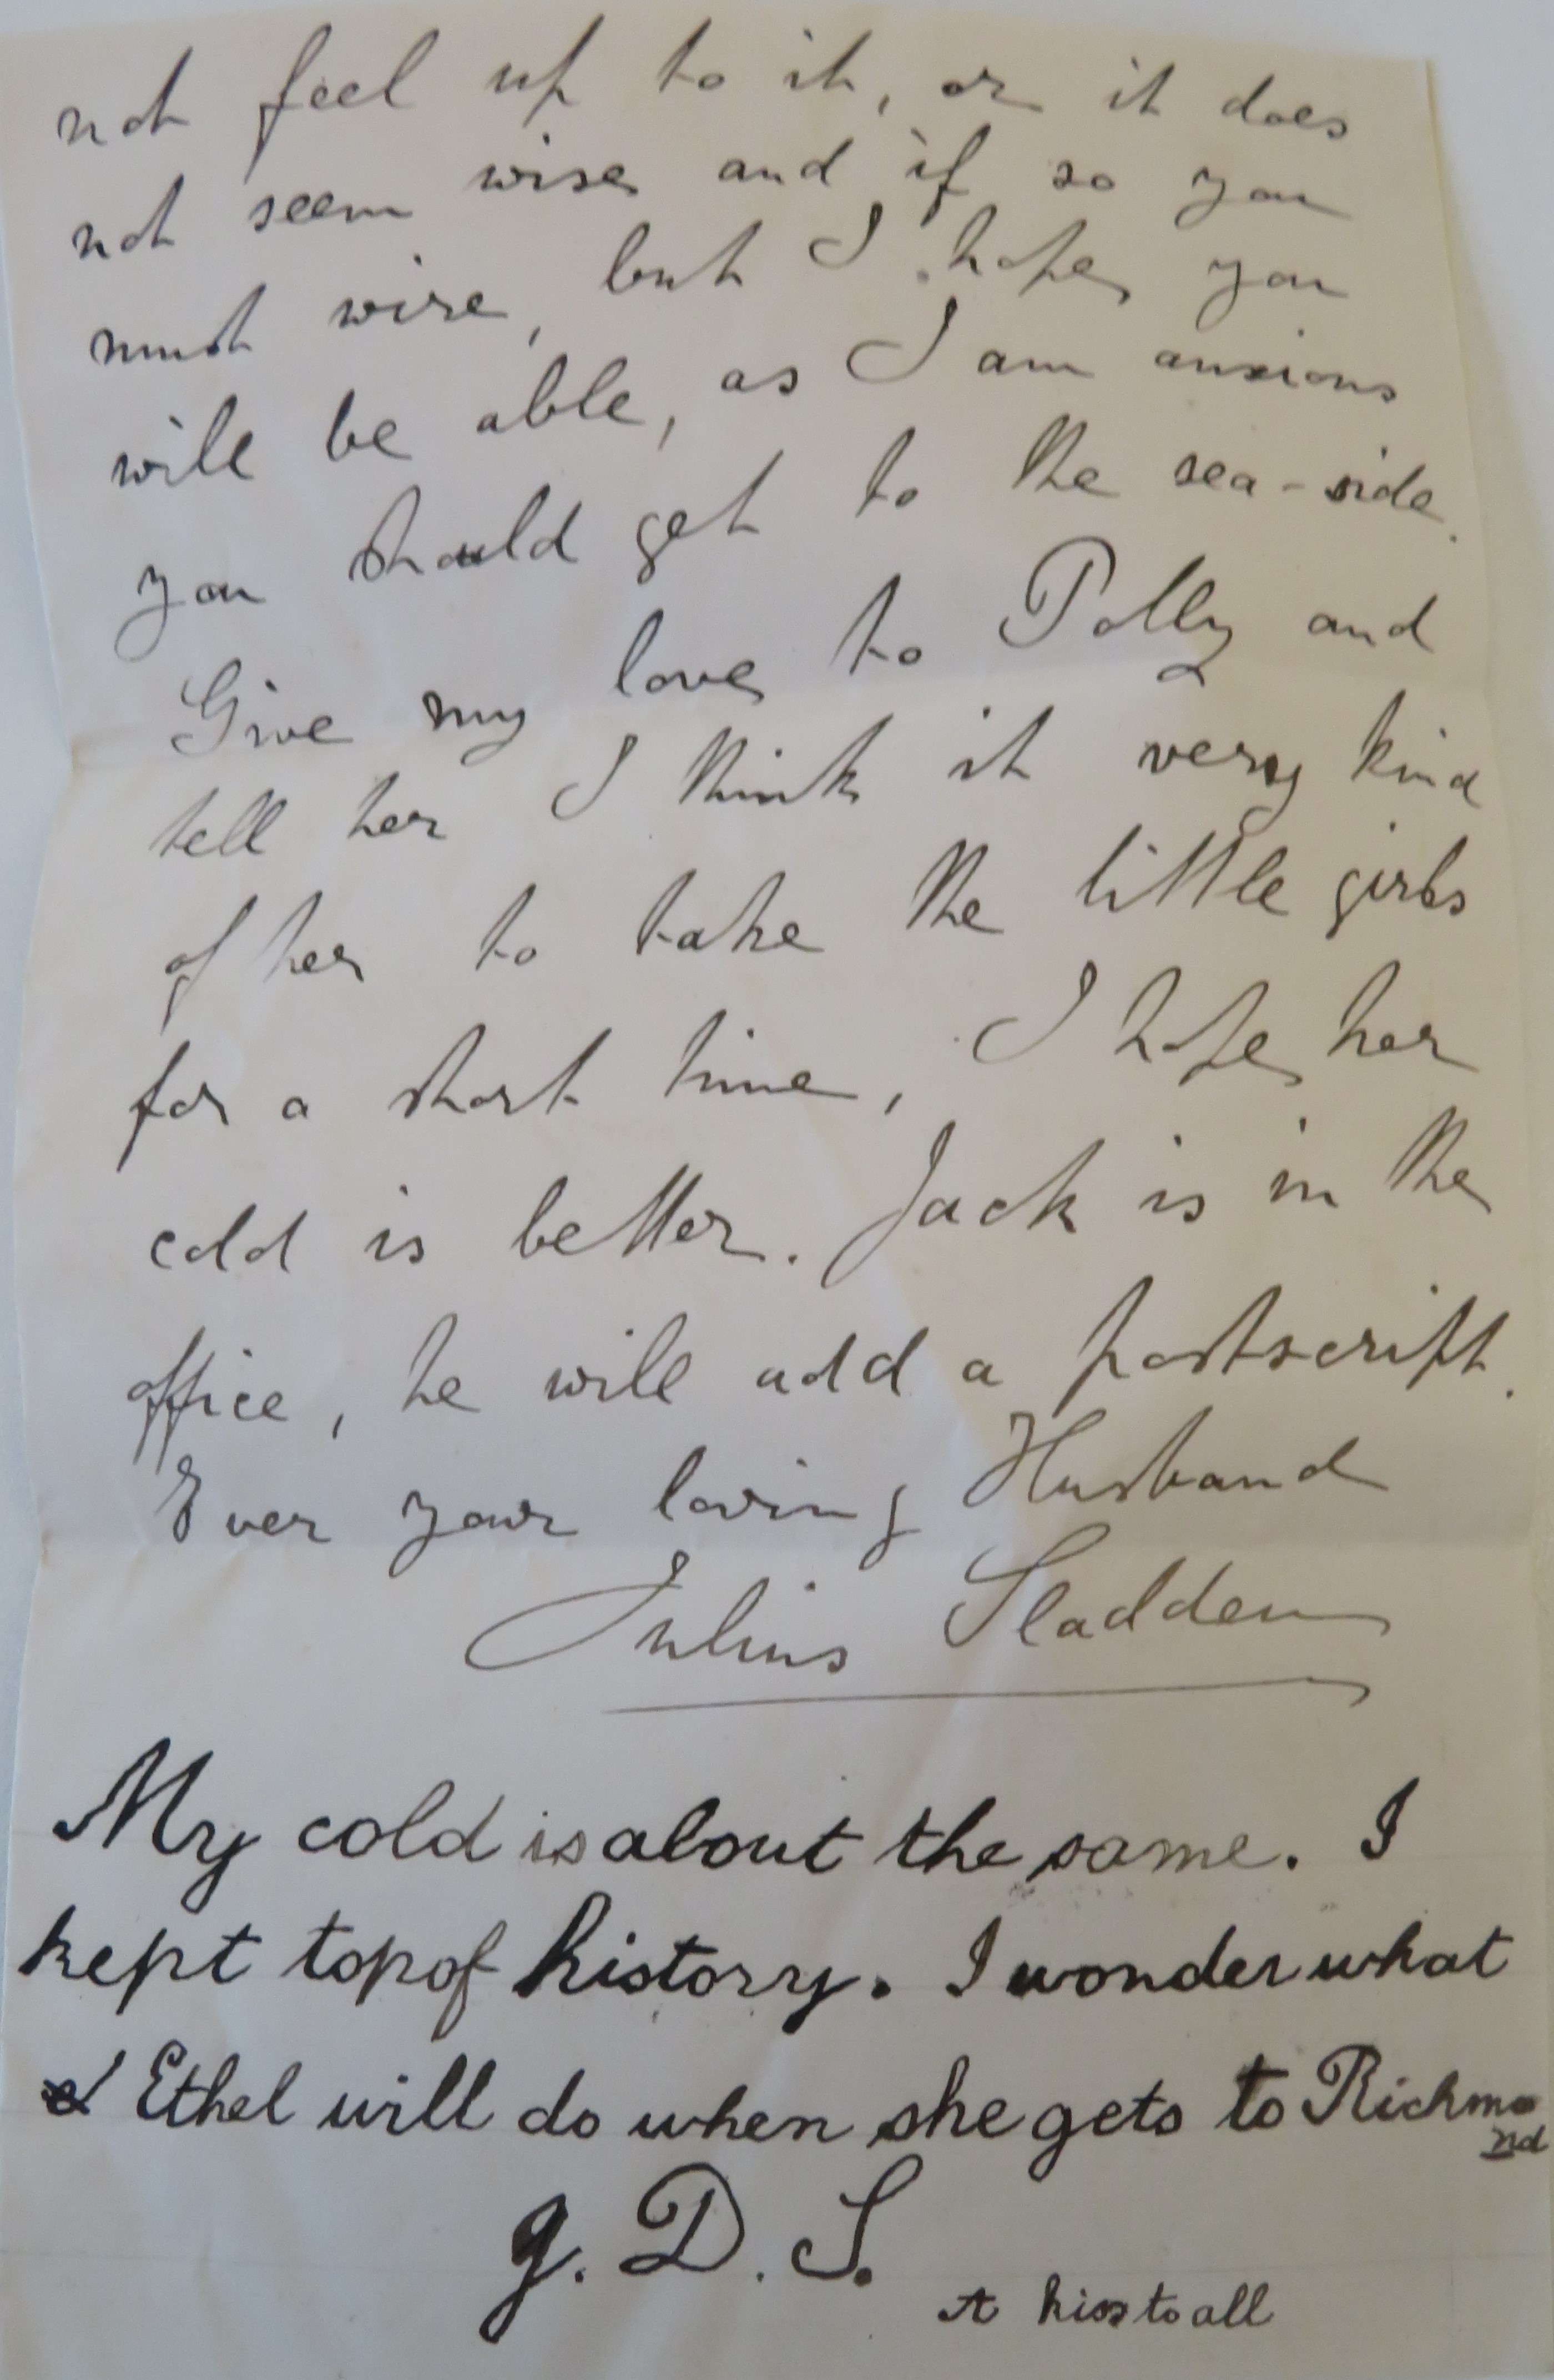 not feel up to it, or it does
not seem wise and if so you
must wire, but I hope you
will be able, as I am anxious
you should get to the sea-side.
Give my love to Polly and
tell her I think it very kind
of her to take the little girls
for a short time, I hope her
cold is better. Jack is in the
office, he will add a postscript.
Ever your loving Husband
Julius Sladden
My cold is about the same. I
kept top of history. I wonder what
Ethel will do when she gets to Richmo
nd
J. D. S.
A kiss to all